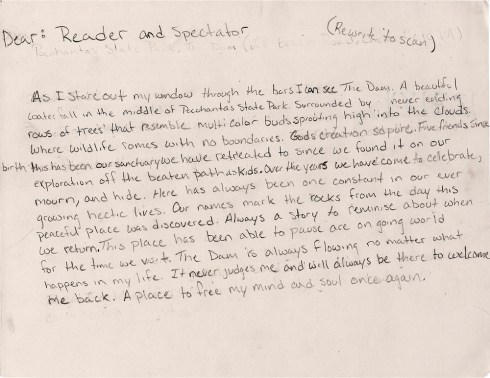 Dear: Reader and Spectator
(Rewrite to scan)
As I stare out my window through the bars I can see The Dam. A beautiful
waterfall in the middle of Pocahontas State Park. Surrounded by never ending
rows of trees that resemble multi color buds sprouting high into the clouds.
Where wildlife roams with no boundaries. Gods creation so pure. True friends since
birth this has been our sanctuary we have retreated to since we found it on our
exploration off the beaten path as kids. Over the years we have come to celebrate,
mourn, and hide. Here has always been one constant in our ever
growing hectic lives. Our names mark the rocks from the day this
peaceful place was discovered. Always a story to reminise about when
we return. This place has been able to pause are on going world
for the time we visit. The Dam is always flowing no matter what
happens in my life. It never judges me and will always be there to welcome
me back. A place to free my mind and soul once again.